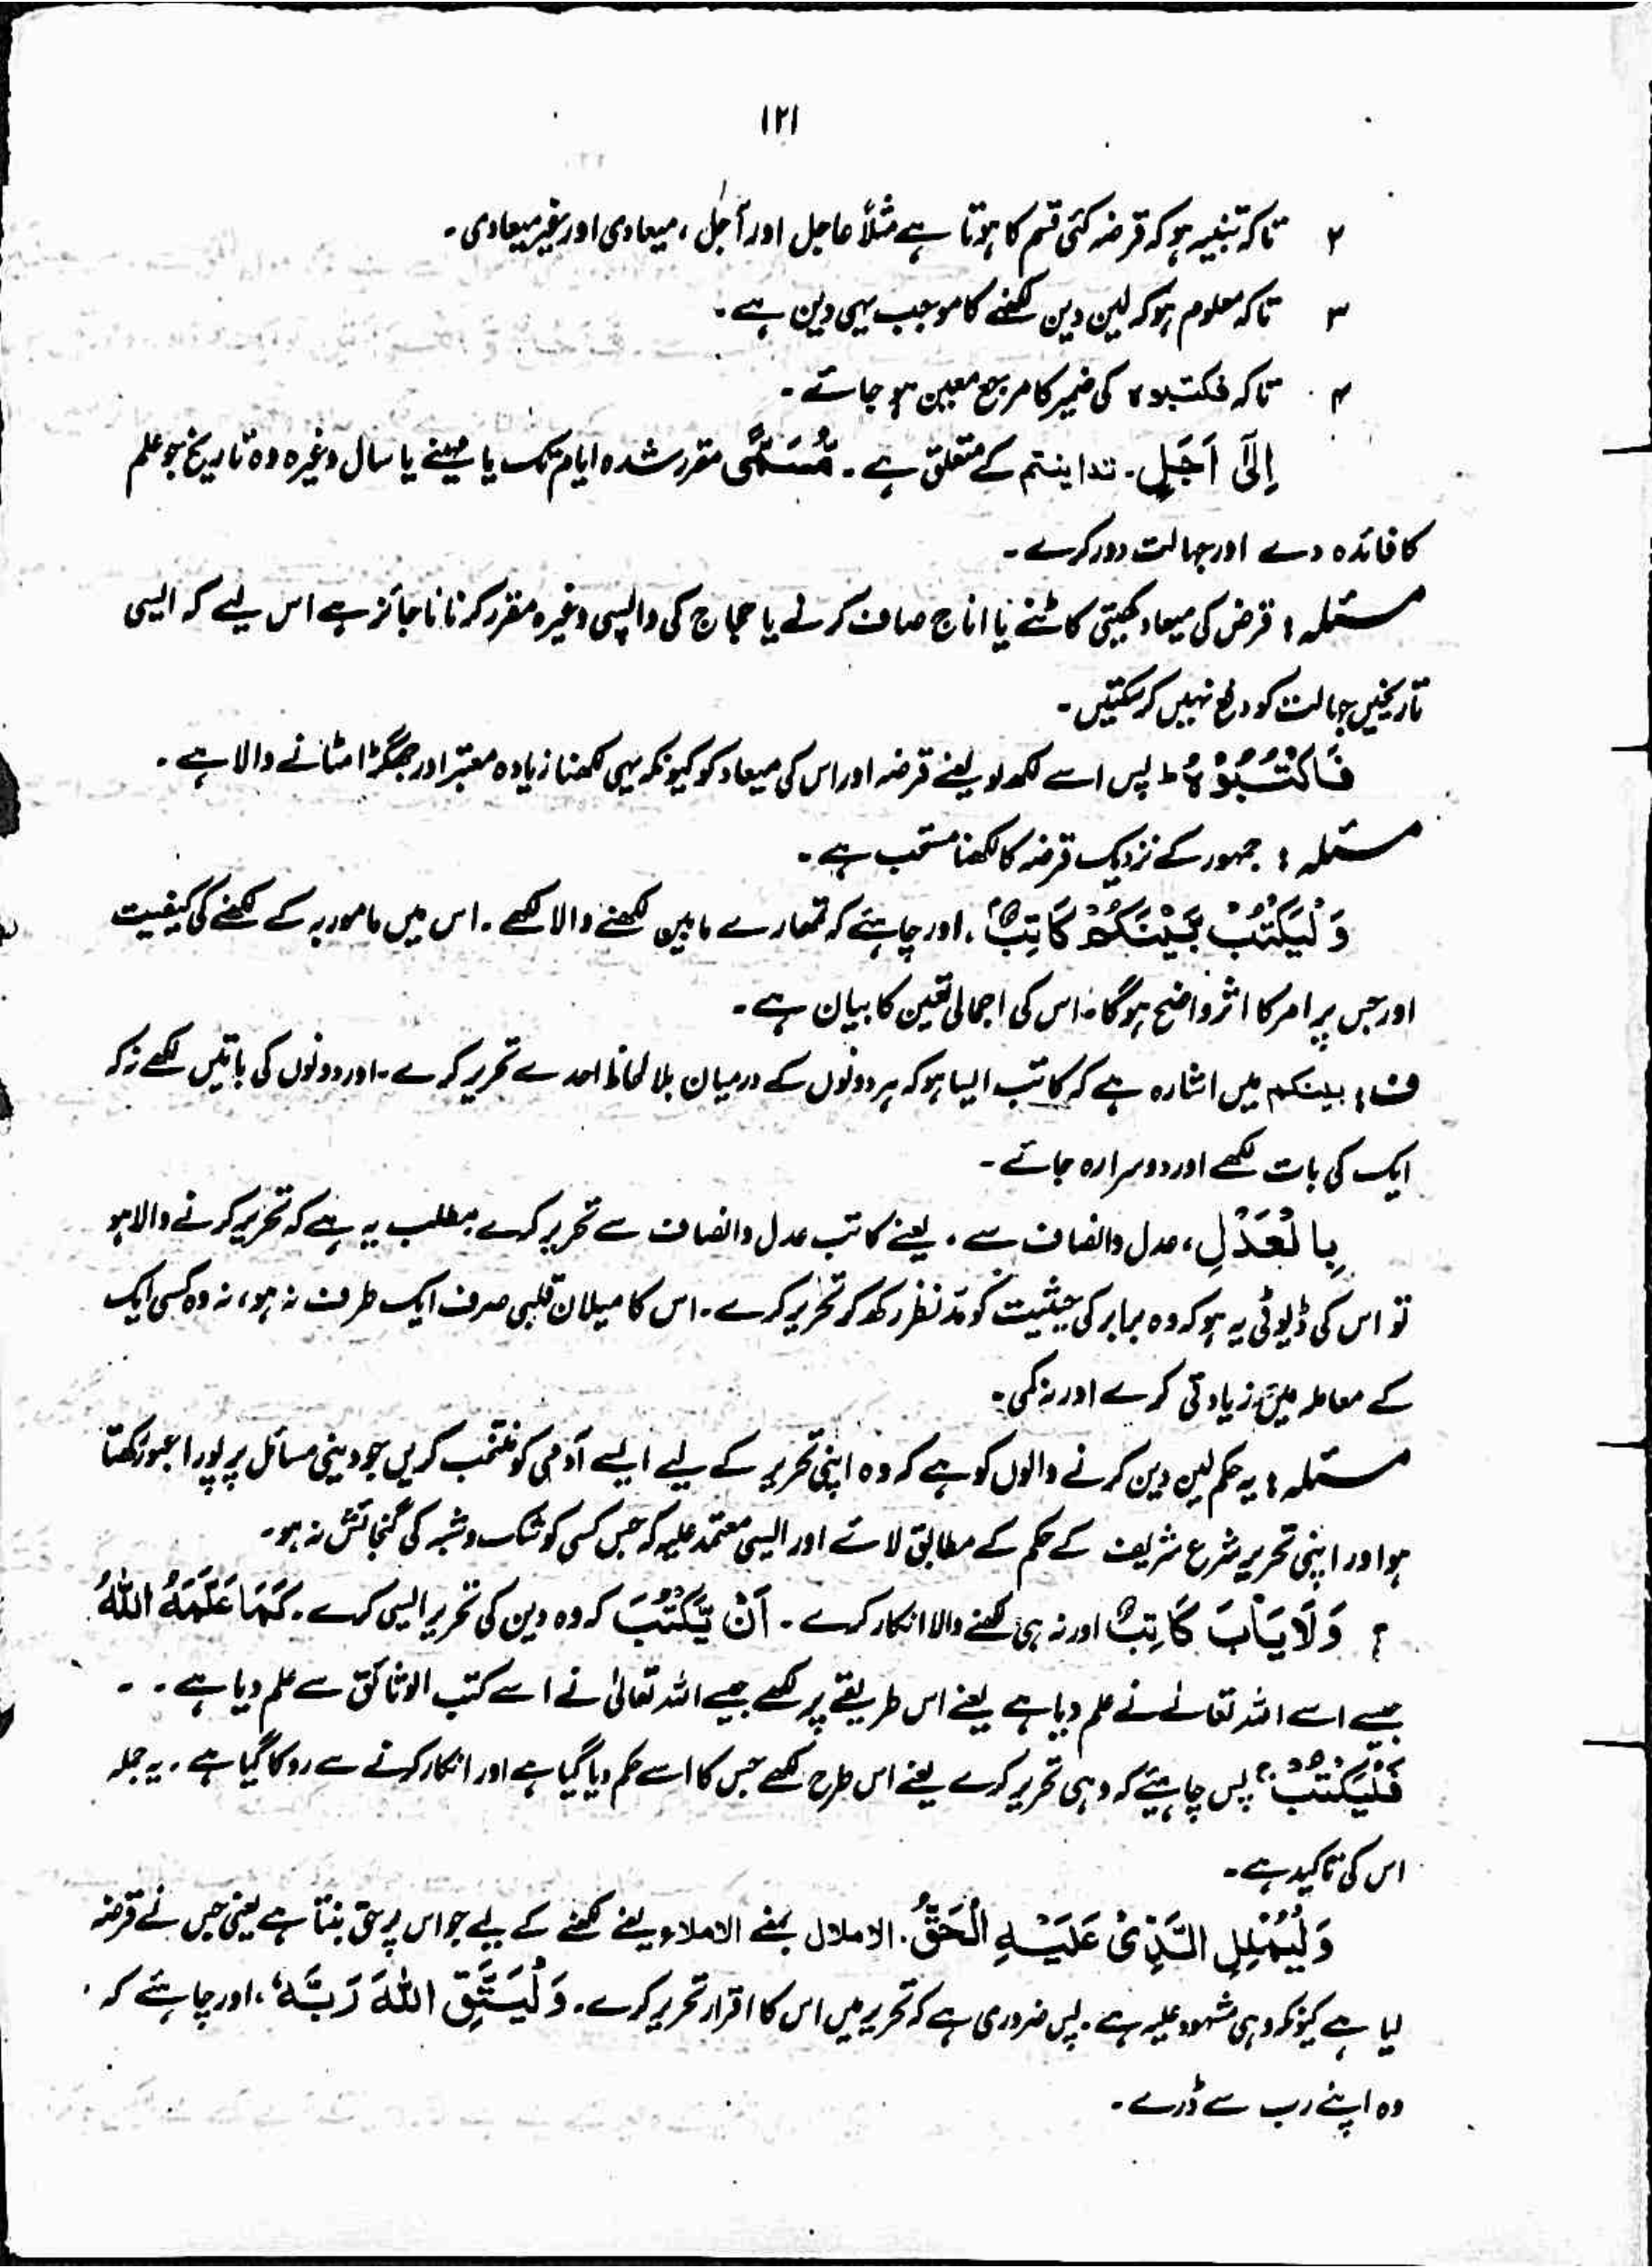 ۱۲۱
۲ تاکہ تنبیہ ہو کہ قرضہ کئی قسم کا ہوتا ہے مثلاً عاجل اور آجل ، میعادی اور غیر میعادی ۔
۳ تاکہ معلوم ہو کہ لین دین لکھنے کا موجب یہی دین ہے ۔
۴ تاکہ فکتبوہ کی ضمیر کا مرجع معین ہو جائے ۔
إِلَىٰٓ اَجَلٍ ۔ تداینتم کے متعلق ہے ۔ مُّسَمًّى مقرر شدہ ایام تک یا مہینے یا سال وغیرہ وہ تاریخ جو علم
کا فائدہ دے اور جہالت دور کرے ۔
مسئلہ : قرض کی میعاد کھیتی کاٹنے یا اناج صاف کرنے یا حجاج کی واپسی وغیرہ مقرر کرنا ناجائز ہے اس لیے کہ ایسی
تاریخیں جہالت کو دفع نہیں کر سکتیں ۔
فَاكْتُبُوْهُ ؕ پس اسے لکھ لو یعنے قرضہ اور اس کی میعاد کو کیونکہ یہی لکھنا زیادہ معتبر اور جھگڑا مٹانے والا ہے ۔
مسئلہ : جمہور کے نزدیک قرضہ کا لکھنا مستحب ہے ۔
وَلْيَكْتُبْ بَّيْنَكُمْ كَاتِبٌ ، اور چاہئے کہ تمھارے مابین لکھنے والا لکھے ۔ اس میں مامور بہ کے لکھنے کی کیفیت
اور جس پر امر کا اثر واضح ہوگا ۔ اس کی اجمالی تعین کا بیان ہے ۔
ف : بینکم میں اشارہ ہے کہ کاتب ایسا ہو کہ ہر دونوں کے درمیان بلا لحاظ احدے تحریر کرے ۔ اور دونوں کی باتیں لکھے نہ کہ
ایک کی بات لکھے اور دوسرا رہ جائے ۔
بِالْعَدْلِ ، عدل وانصاف سے ۔ یعنے کاتب عدل وانصاف سے تحریر کرے مطلب یہ ہے کہ تحریر کرنے والا ہو
تو اس کی ڈیوٹی یہ ہو کہ وہ برابر کی حیثیت کو مدّنظر رکھ کر تحریر کرے ۔ اس کا میلان قلبی صرف ایک طرف نہ ہو ، نہ وہ کسی ایک
کے معاملہ میں زیادتی کرے اور نہ کمی ۔
مسئلہ : یہ حکم لین دین کرنے والوں کو ہے کہ وہ اپنی تحریر کے لیے ایسے آدمی کو منتخب کریں جو دینی مسائل پر پورا عبور رکھتا
ہو اور اپنی تحریر شرع شریف کے حکم کے مطابق لائے اور ایسی معتمد علیہ کہ جس کسی کو شک و شبہ کی گنجائش نہ ہو ۔
وَلَا يَاْبَ كَاتِبٌ اور نہ ہی لکھنے والا انکار کرے ۔ اَنْ يَّكْتُبَ کہ وہ دین کی تحریر ایسی کرے ۔ كَمَا عَلَّمَهُ اللّٰهُ
جیسے اسے اللہ تعالےٰ نے علم دیا ہے یعنے اس طریقے پر لکھے جیسے اللہ تعالیٰ نے اسے کتب الوثائق سے علم دیا ہے ۔ ۔
فَلْيَكْتُبْ ۚ پس چاہیئے کہ وہی تحریر کرے یعنے اس طرح لکھے جس کا اسے حکم دیا گیا ہے اور انکار کرنے سے روکا گیا ہے ۔ یہ جملہ
اس کی تاکید ہے ۔
وَلْيُمْلِلِ الَّذِىْ عَلَيْهِ الْحَقُّ ۔ الاملال بمنے الاملاء یعنے لکھنے کے لیے جو اس پر حق بنتا ہے یعنی جس نے قرضہ
لیا ہے کیونکہ وہی مشہود علیہ ہے ۔ پس ضروری ہے کہ تحریر میں اس کا اقرار تحریر کرے ۔ وَلْيَتَّقِ اللّٰهَ رَبَّهٗ ، اور چاہئے کہ
وہ اپنے رب سے ڈرے ۔